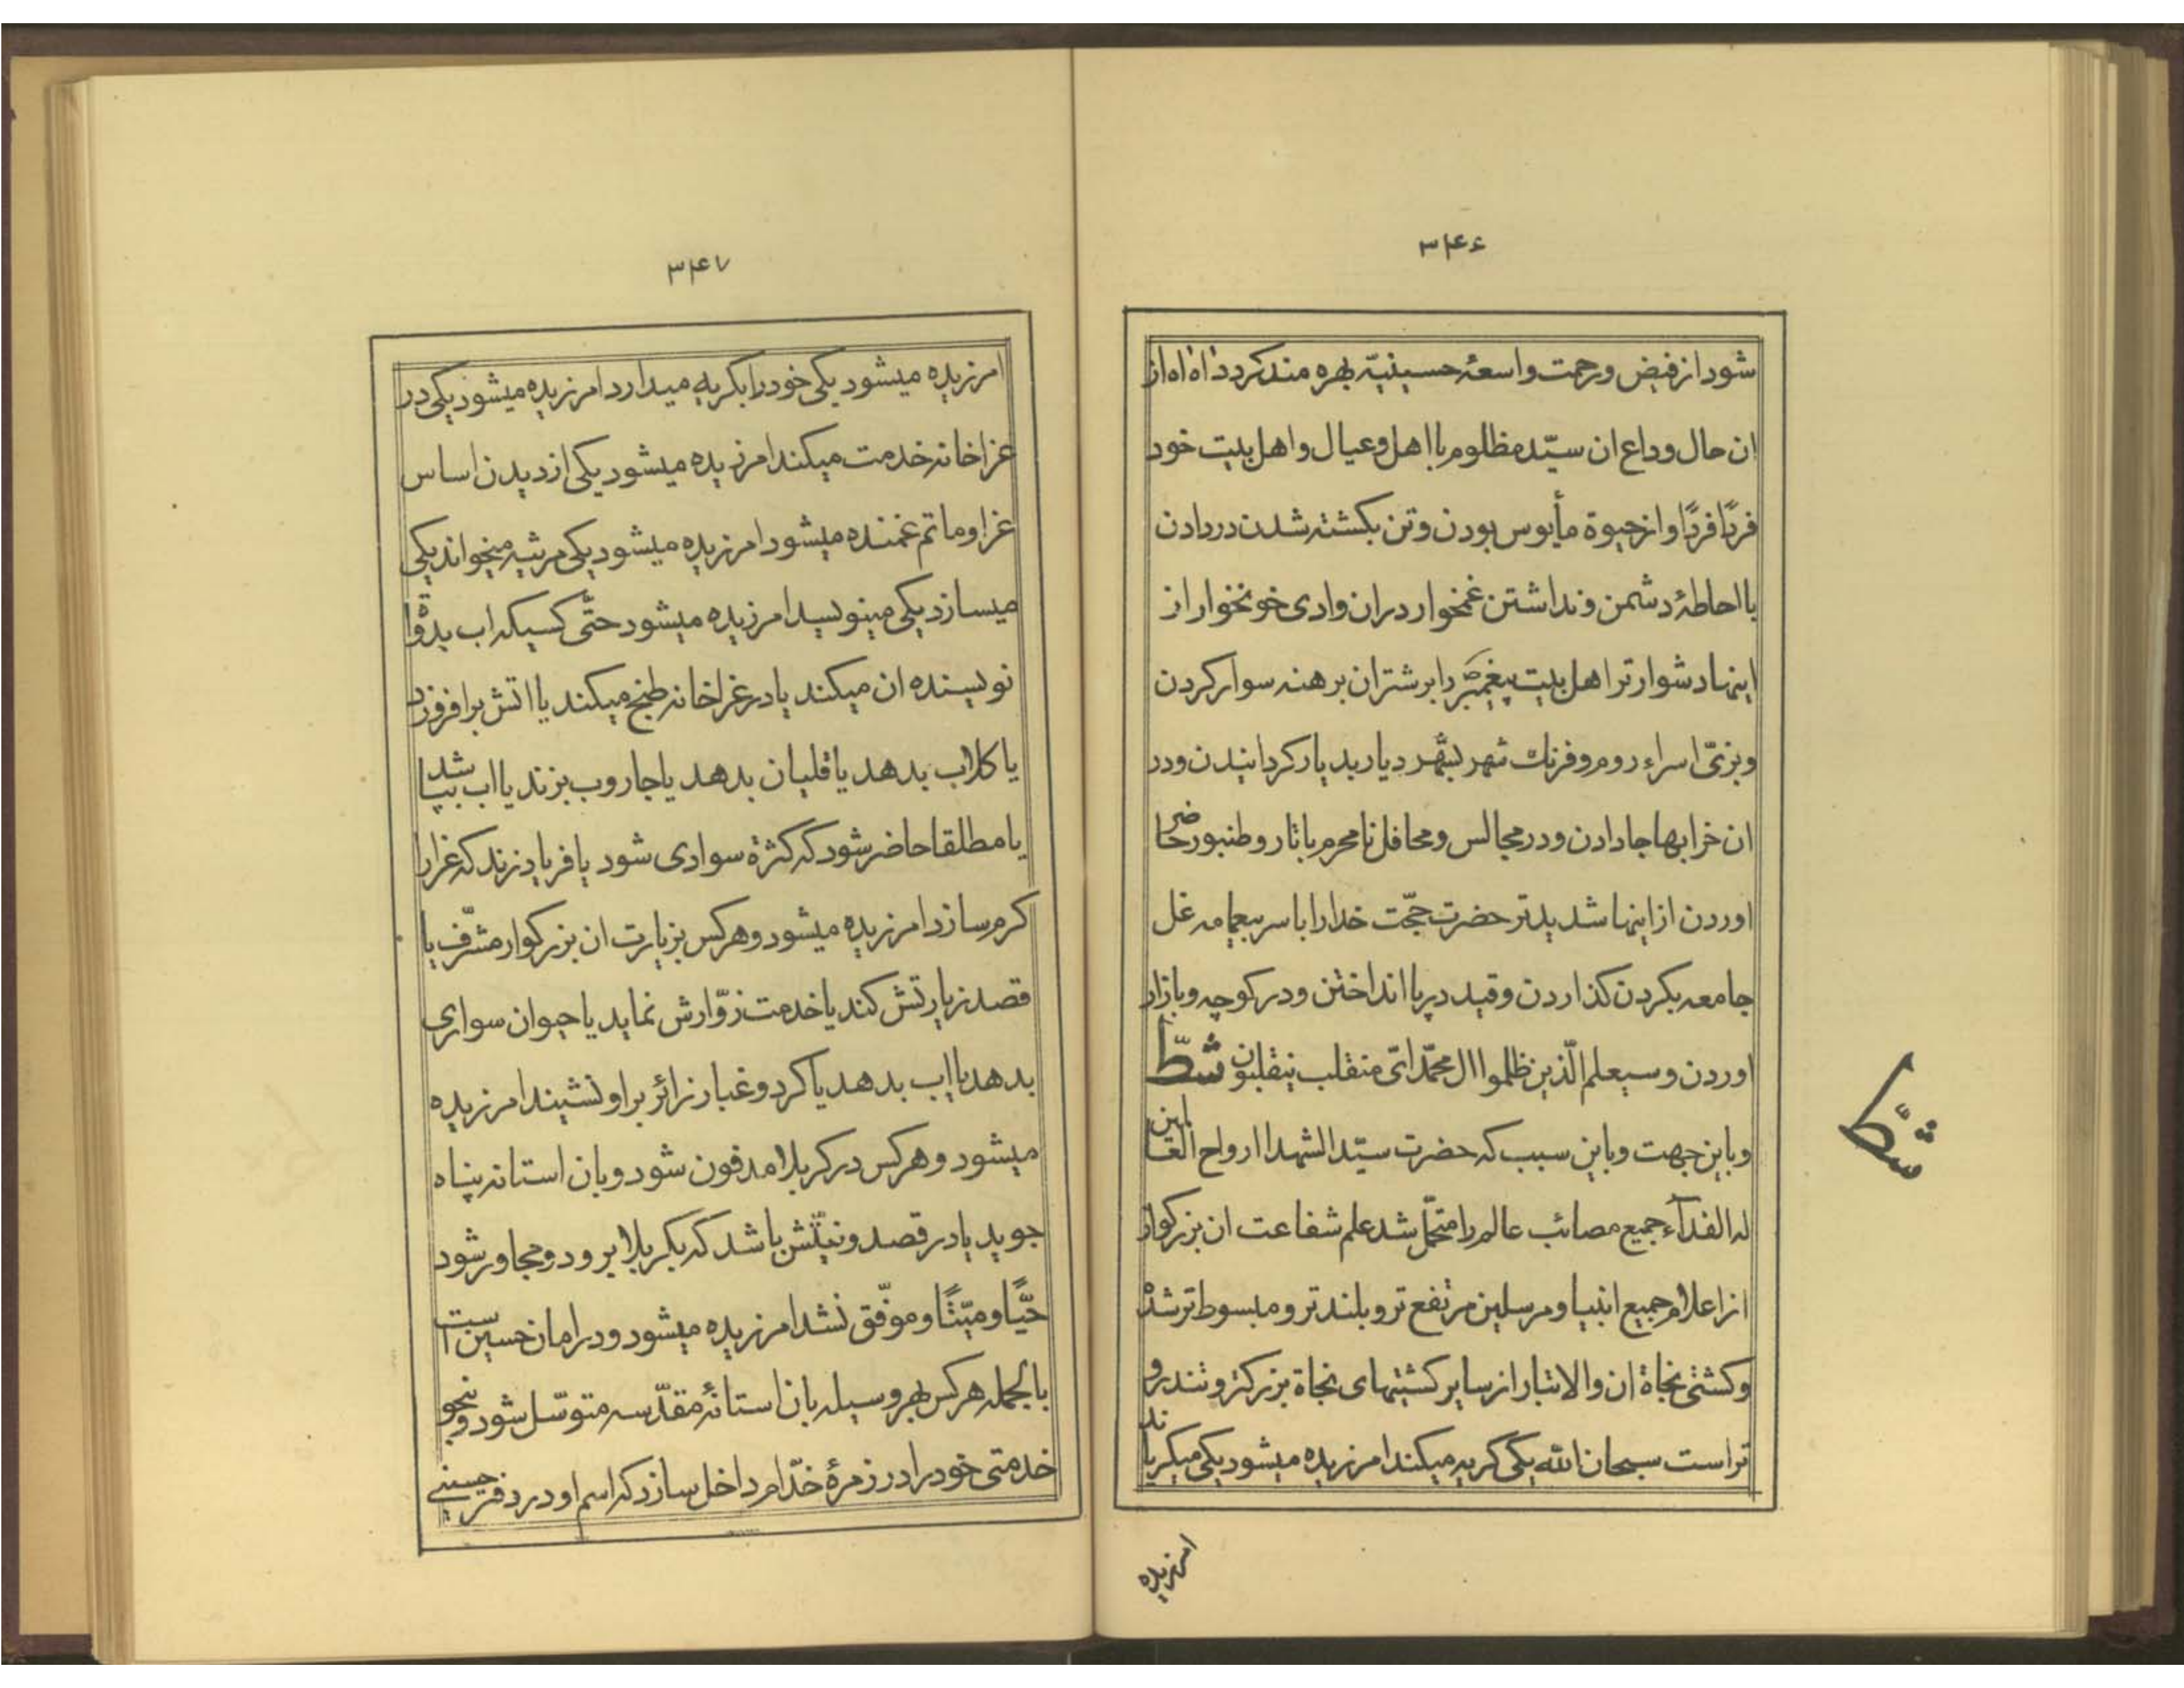 ۳۴۶
شود از فیض و رحمت واسعهٔ حسینیّه بهره مند کردد اه اه از
ان حال وداع ان سیّد مظلوم با اهل و عیال و اهل بیت خود
فردًا فردًا و از حیوة مأیوس بودن و تن بکشته شدن در دادن
با احاطهٔ دشمن و نداشتن غمخوار دران وادی خونخوار از
اینها دشوارتر اهل بیت پیغمبر را بر شتران برهنه سوار کردن
و بزیّ اسراء روم و فرنك شهر بشهر دیار بدیار کردانیدن و در
ان خرابها جا دادن و در مجالس و محافل نامحرم با تار و طنبور حاضر
اوردن از اینها شدیدتر حضرت حجّت خدا را با سر بیعمامه غل
جامعه بکردن کذاردن و قید در پا انداختن و در کوچه و بازار
اوردن و سیعلم الّذین ظلموا ال محمّد ایّ منقلب ینقلبون شطّ
و باین جهت و باین سبب که حضرت سیّد الشهدا ارواح العالمین
له الفدآء جمیع مصائب عالم را متحمّل شد علم شفاعت ان بزرکوار
از اعلام جمیع انبیا و مرسلین مرتفع تر و بلندتر و مبسوط تر شد
و کشتی نجاة ان والاتبار از سایر کشتیهای نجاة بزرکتر و تندرو
تر است سبحان الله یکی کریه میکند امرزیده میشود یکی میکریاند
امرزیده
شطّ
۳۴۷
امرزیده میشود یکی خود را بکریه میدارد امرزیده میشود یکی در
عزاخانه خدمت میکند امرزیده میشود یکی از دیدن اساس
عزا و ماتم غمنده میشود امرزیده میشود یکی مرثیه میخواند یکی
میسازد یکی مینویسد امرزیده میشود حتّی کسیکه اب بدوات
نویسنده ان میکند یا در عزاخانه طبخ میکند یا اتش برافروزد
یا کلاب بدهد یا قلیان بدهد یا جاروب بزند یا اب بپاشد
یا مطلقا حاضر شود که کثرة سوادی شود یا فریاد زند که عزا را
کرم سازد امرزیده میشود و هر کس بزیارت ان بزرکوار مشرّف یا
قصد زیارتش کند یا خدمت زوّارش نماید یا حیوان سواری
بدهد یا اب بدهد یا کرد و غبار زائر بر او نشیند امرزیده
میشود و هر کس در کربلا مدفون شود و بان استانه پناه
جوید یا در قصد و نیّتش باشد که بکربلا برود و مجاور شود
حیًّا و میّتًا و موفّق نشد امرزیده میشود و در امان حسین است
بالجمله هر کس بهر وسیله بان استانهٔ مقدّسه متوسّل شود و بنحو
خدمتی خود را در زمرهٔ خدّام داخل سازد که اسم او در دفتر حسینی